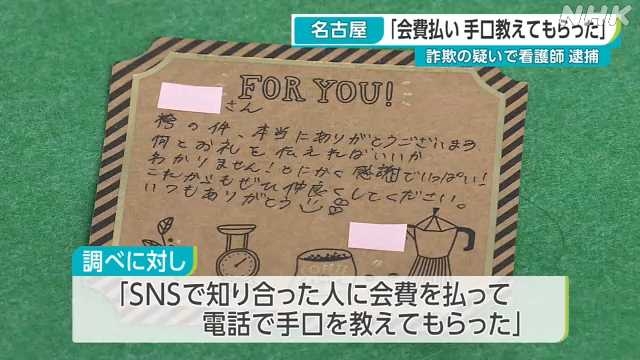 NHK
名古屋
「会費払い 手口教えてもらった」
詐欺の疑いで看護師 逮捕
FOR YOU!
さん
袴の件、本当にありがとうございます
何とお礼を伝えればいいか
わかりません!とにかく感謝でいっぱい!
これからもぜひ仲良くしてください。
いつもありがとう
COFFEE
調べに対し
「SNSで知り合った人に会費を払って
電話で手口を教えてもらった」